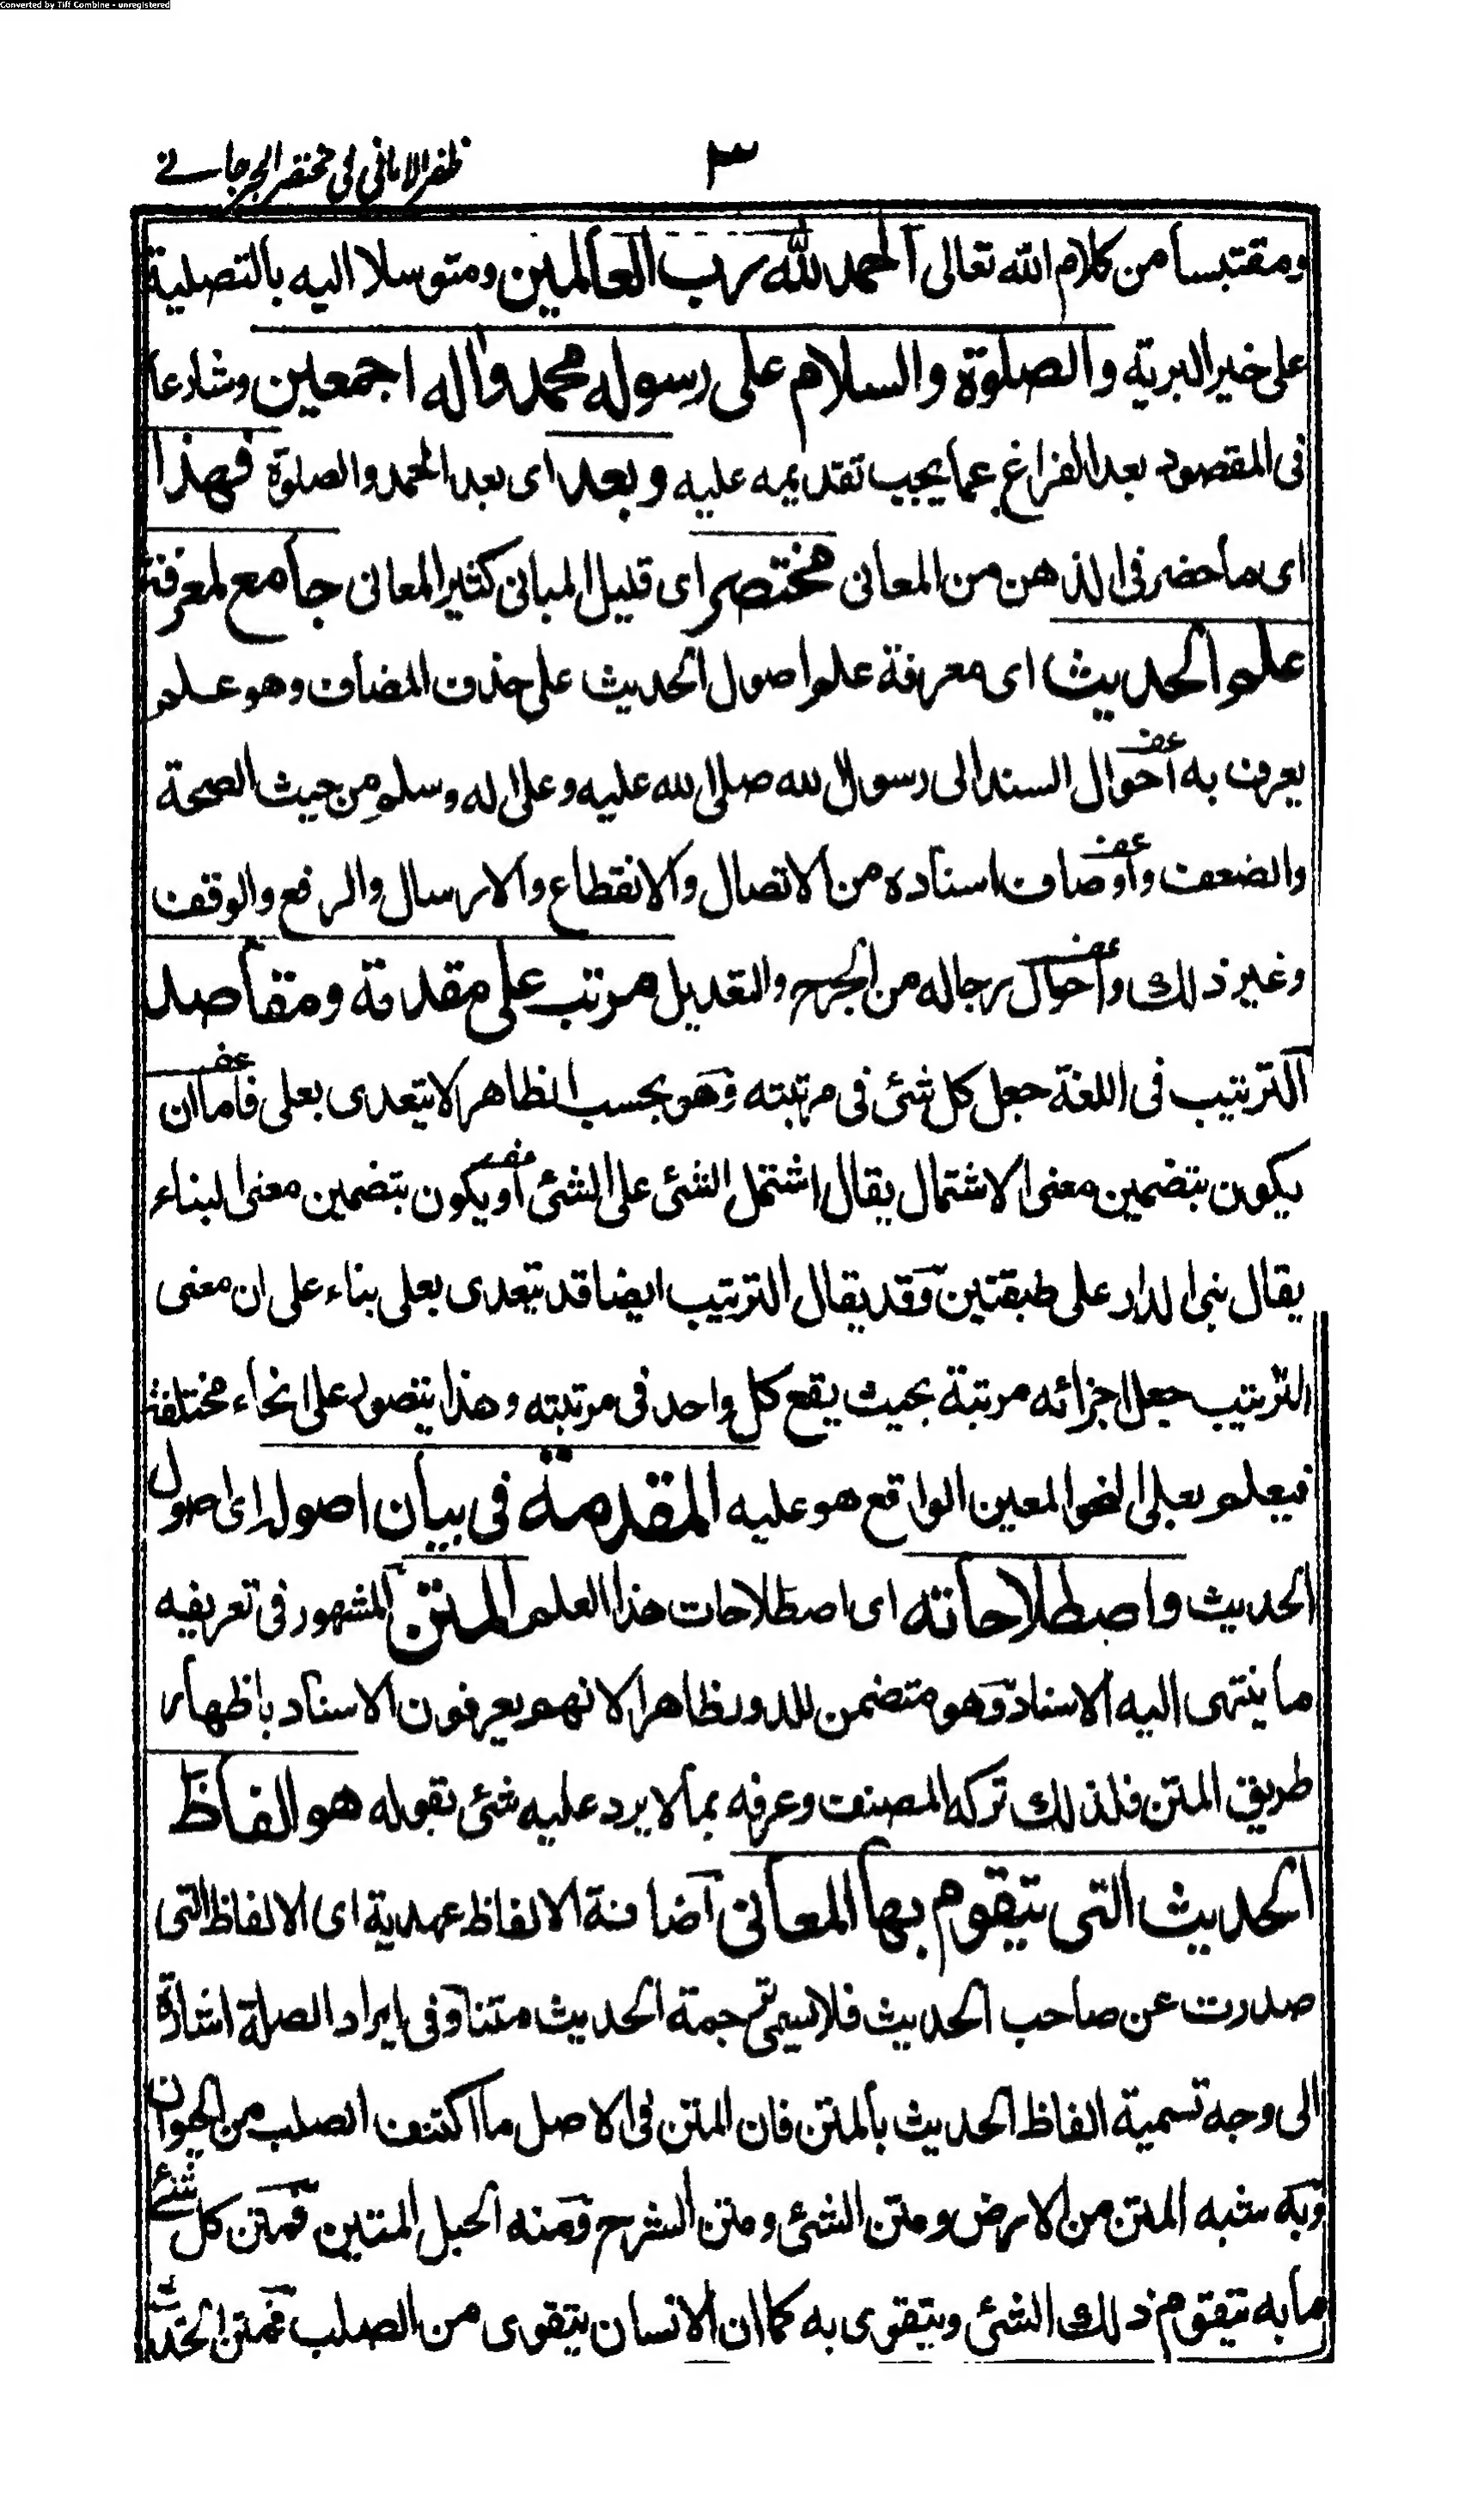 Converted by Tiff Combine - unregistered
ظفر الامانی فی مختصر الجرجانے
٣
ومقتبسا من كلام الله تعالى الحمد لله رب العالمين ومتوسلا اليه بالتصلية
على خير البرية والصلوة والسلام على رسوله محمد واله اجمعين وشارعا
فى المقصود بعد الفراغ عما يجب تقديمه عليه وبعد اى بعد الحمد والصلوة فهذا
اى ما حضر فى الذهن من المعانى مختصر اى قليل المبانى كثير المعانى جامع لمعرفة
علم الحديث اى معرفة علم اصول الحديث على حذف المضاف وهو علم
يعرف به احوال السند الى رسول الله صلى الله عليه وعلى اله وسلم من حيث الصحة
والضعف واوصاف اسناده من الاتصال والانقطاع والارسال والرفع والوقف
وغير ذلك واحوال رجاله من الجرح والتعديل مرتب على مقدمة ومقاصد
الترتيب فى اللغة جعل كل شئ فى مرتبته وهو بحسب الظاهر لا يتعدى بعلى فاما ان
يكون بتضمين معنى الاشتمال يقال اشتمل الشئ على الشئ او يكون بتضمين معنى البناء
يقال بنى الدار على طبقتين وقد يقال الترتيب ايضا قد يتعدى بعلى بناء على ان معنى
الترتيب جعل اجزائه مرتبة بحيث يقع كل واحد فى مرتبته وهذا يتصور على انحاء مختلفة
فيعلم بعلى النحو المعين الواقع هو عليه المقدمة فى بيان اصوله اى اصول
الحديث واصطلاحاته اى اصطلاحات هذا العلم المتن المشهور فى تعريفه
ما ينتهى اليه الاسناد وهو متضمن للدور ظاهرا لانهم يعرفون الاسناد باظهار
طريق المتن فلذلك تركه المصنف وعرفه بما لا يرد عليه شئ بقوله هو الفاظ
الحديث التى يتقوم بها المعانى اضافة الالفاظ عهدية اى الالفاظ التى
صدرت عن صاحب الحديث فلا يسمى ترجمة الحديث متنا وفى ايراد الصلة اشارة
الى وجه تسمية الفاظ الحديث بالمتن فان المتن فى الاصل ما اكتنف الصلب من الحيوان
وبه شبه المتن من الارض ومتن الشئ ومتن الشرح ومنه الحبل المتين فمتن كل شئ
ما به يتقوم ذلك الشئ ويتقوى به كما ان الانسان يتقوى من الصلب فمتن الحديث